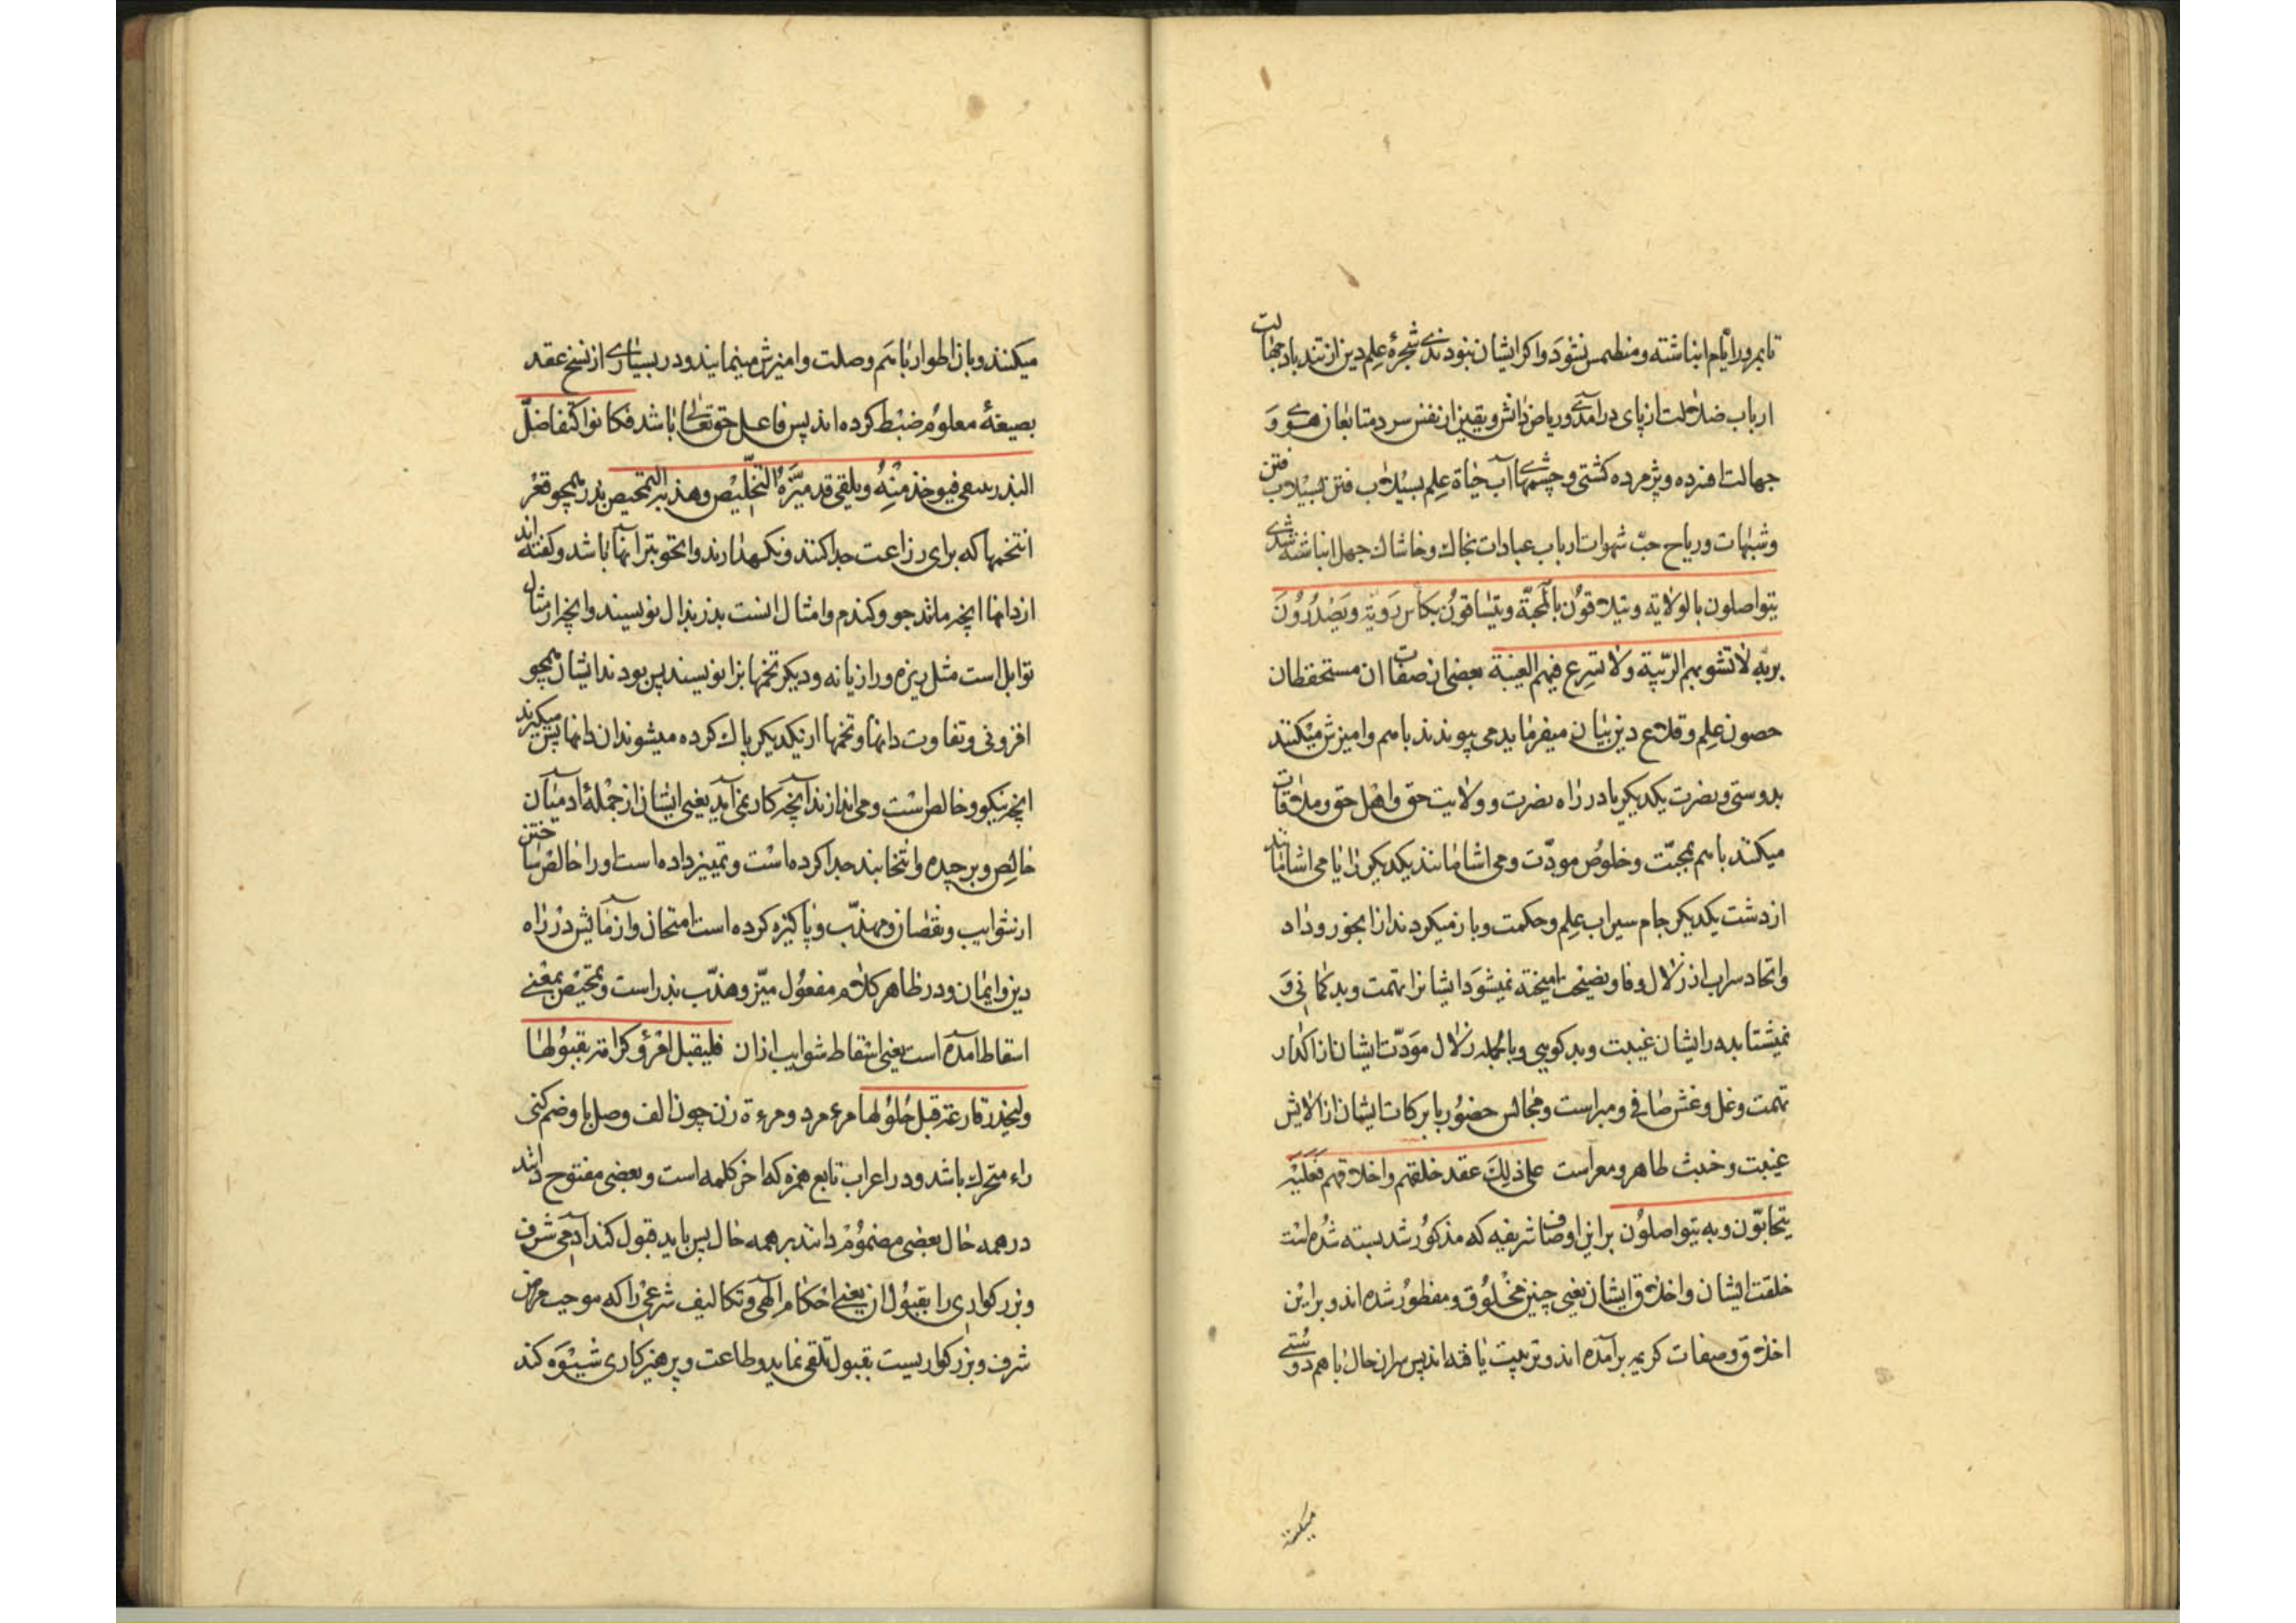 تا بمرور ایام انباشته و منطمس نشود و اگر ایشان نبودندی شجرهٔ علم دین از تند باد جهالت
ارباب ضلالت از پای در آمدی و ریاض دانش و یقین از نفس سرد متابعان هوی و
جهالت افسرده و پژمرده کشتی و چشمهای آب حیاة علم بسیلاب فتن
و شبهات و ریاح حبّ شهوات ارباب عبادات بخاك و خاشاك جهل انباشته شدی
یتواصلون بالولایه و یتلاقون بالمحبّة و یتساقون بکأس رویّة و یصدرون
بریّه لا تشوبهم الرّیبة و لا تسرع فیهم الغیبة بعضی از صفات ان مستحفظان
حصون علم و قلاع دین بیان میفرماید می پیوندند باهم و امیزش میکنند
بدوستی و نصرت یکدیکر یا در راه نصرت و ولایت حق و اهل حق و ملاقات
میکنند باهم بمحبّت و خلوص مودّت و می اشامانند یکدیکر را یا می اشامانند
از دست یکدیکر جام سیراب علم و حکمت و باز میکردند از ابخور وداد
و اتحاد سیراب از زلال وفا و نصیحت امیخته نمیشود ایشانرا تهمت و بدکمانی و
نمیشتابد در ایشان غیبت و بدکویی و بالجمله زلال مودّت ایشان از اکدار
تهمت و غل و غش صافی و مبراست و مجالس حضور با برکات ایشان از الایش
غیبت و خبث طاهر و معراست علی ذلك عقد خلقهم و اخلاقهم فعلیه
یتحابّون و به یتواصلون بر این اوصاف شریفه که مذکور شد بسته شده است
خلقت ایشان و اخلاق ایشان یعنی چنین مخلوق و مفطور شده اند و بر این
اخلاق و صفات کریم برآمده اند و تربیت یافته اند پس بران حال باهم دوستی
میکنند
میکنند و بان اطوار باهم وصلت و امیزش مینمایند و در بسیاری از نسخ عقد
بصیغهٔ معلوم ضبط کرده اند پس فاعل حق تعالی باشد فکانوا کتفاضل
البذر ینتقی فیوخذ منه و یلقی قد میّزه التخلیص و هذّبه التمحیص بذر همچو قعر
انتخمها که برای زراعت جدا کنند و نکهدارند و انچو بتر آنها باشد و کفته اند
از دانها انچه مانند جو و کندم و امثال انست بذر بذال نویسند و انچه از مثال
توابل است مثل زیره و رازیانه و دیکر تخمها بزا نویسند پس بودند ایشان همچو
افزونی و تفاوت دانها و تخمها از یکدیکر پاك کرده میشوند ان دانها پس میکیرند
انچه نیکو و خالص است و می اندازند آنچه کار نمی آید یعنی ایشان از جملهٔ آدمیان
خالص و برچیده و انتخابند جدا کرده است و تمییز داده است او را خالص ساختن
از شوایب و نقصان و مهذّب و پاکیزه کرده است امتحان و ازمایش در راه
دین و ایمان و در ظاهر کلام مفعول میّز و هذّب بذر است و تمحیص بمعنی
اسقاط آمده است یعنی اسقاط شوایب ازان فلیقبل امرؤ کرامة بقبولها
ولیحذر قارعة قبل حلولها مرء مرد و مرءة زن چون الف وصل با و ضم کنی
راء متحرك باشد و در اعراب تابع همزه که اخر کلمه است و بعضی مفتوح دانند
در همه حال بعضی مضموم دانند بر همه حال پس باید قبول کند آدمی شرف
و بزرکواری را بقبول ان یعنی احکام الهی و تکالیف شرعی را که موجب
شرف و بزرکواریست بقبول تلقی نماید و طاعت و پرهیزکاری شیوه کند